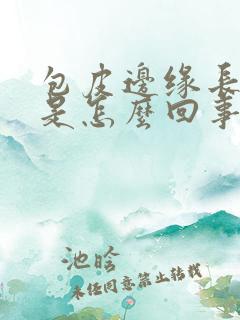 包皮邊缘長
是怎麼回事
池晗
未经同意禁止转载